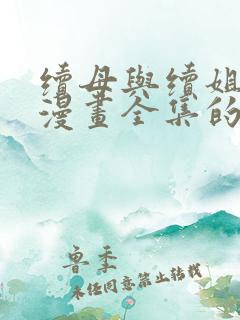 續母與續姐
漫畫全集的
魯季
未任同意禁止转载